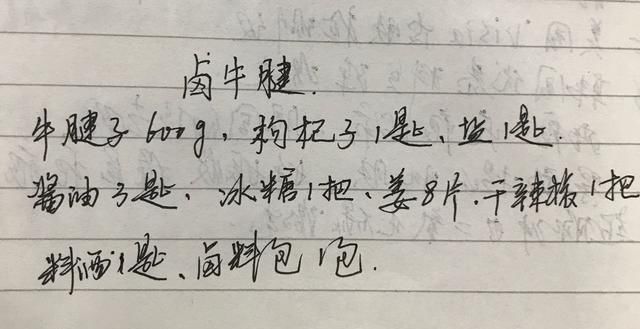 卤牛腱.
牛腱子600g、枸杞子1匙、盐1匙.
酱油3匙、冰糖1把、姜8片.干辣椒1把
料酒1匙、卤料包1包.